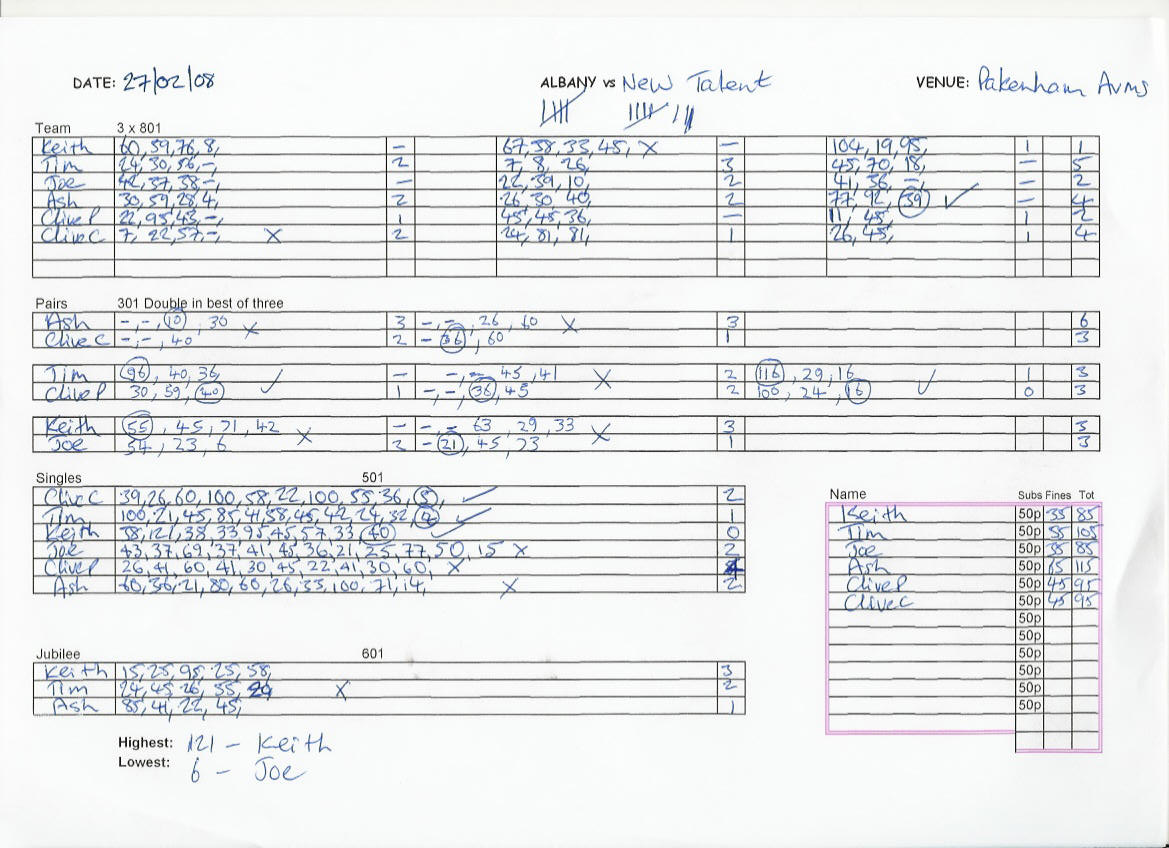 DATE: 27/02/08 ALBANY vs New Talent VENUE: Pakenham Arms
Team 3 x 801
Keith 60, 59, 76, 8, – 67, 58, 33, 45, X – 104, 19, 95, 1 1
Tim 24, 30, 56, –, 2 7, 8, 26, 3 45, 70, 18, – 5
Joe 42, 37, 38 –, – 22, 39, 10, 2 41, 36, –, – 2
Ash 30, 59, 28, 4, 2 26, 30, 40, 2 77, 92, 39 ✓ – 4
Clive P 22, 95, 43, –, 1 45, 45, 36, – 11, 45, 1 2
Clive C 7, 22, 57, –, X 2 24, 81, 81, 1 26, 45, 1 4
Pairs 301 Double in best of three
Ash –, –, 10, 30 X 3 –, –, 26, 60 X 3 6
Clive C –, –, 40 2 – 36, 60 1 3
Tim 96, 40, 36, ✓ – –, –, 45, 41 X 2 116, 29, 16 ✓ 1 3
Clive P 30, 59, 40 1 –, –, 36, 45 2 100, 24, 16 0 3
Keith 55, 45, 71, 42 X – –, – 63, 29, 33 X 3 3
Joe 54, 23, 6 2 – 21, 45, 23 1 3
Singles 501
Clive C 39, 26, 60, 100, 58, 22, 100, 55, 36, 5, ✓ 2
Tim 100, 21, 45, 85, 41, 58, 45, 42, 24, 32, ✓ 1
Keith 58, 121, 38, 33, 95, 45, 57, 33, 40 ✓ 0
Joe 43, 37, 69, 37, 41, 45, 36, 21, 25, 77, 50, 15 X 2
Clive P 26, 41, 60, 41, 30, 45, 22, 41, 30, 60, X
Ash 60, 36, 21, 80, 60, 26, 33, 100, 71, 14, X 2
Name Subs Fines Tot
Keith 50p 35 85
Tim 50p 55 105
Joe 50p 35 85
Ash 50p 65 115
Clive P 50p 45 95
Clive C 50p 45 95
50p
50p
50p
50p
50p
50p
Jubilee 601
Keith 15, 25, 95, 25, 58, 3
Tim 24, 45, 26, 55, X 2
Ash 85, 41, 22, 45, 1
Highest: 121 – Keith
Lowest: 6 – Joe